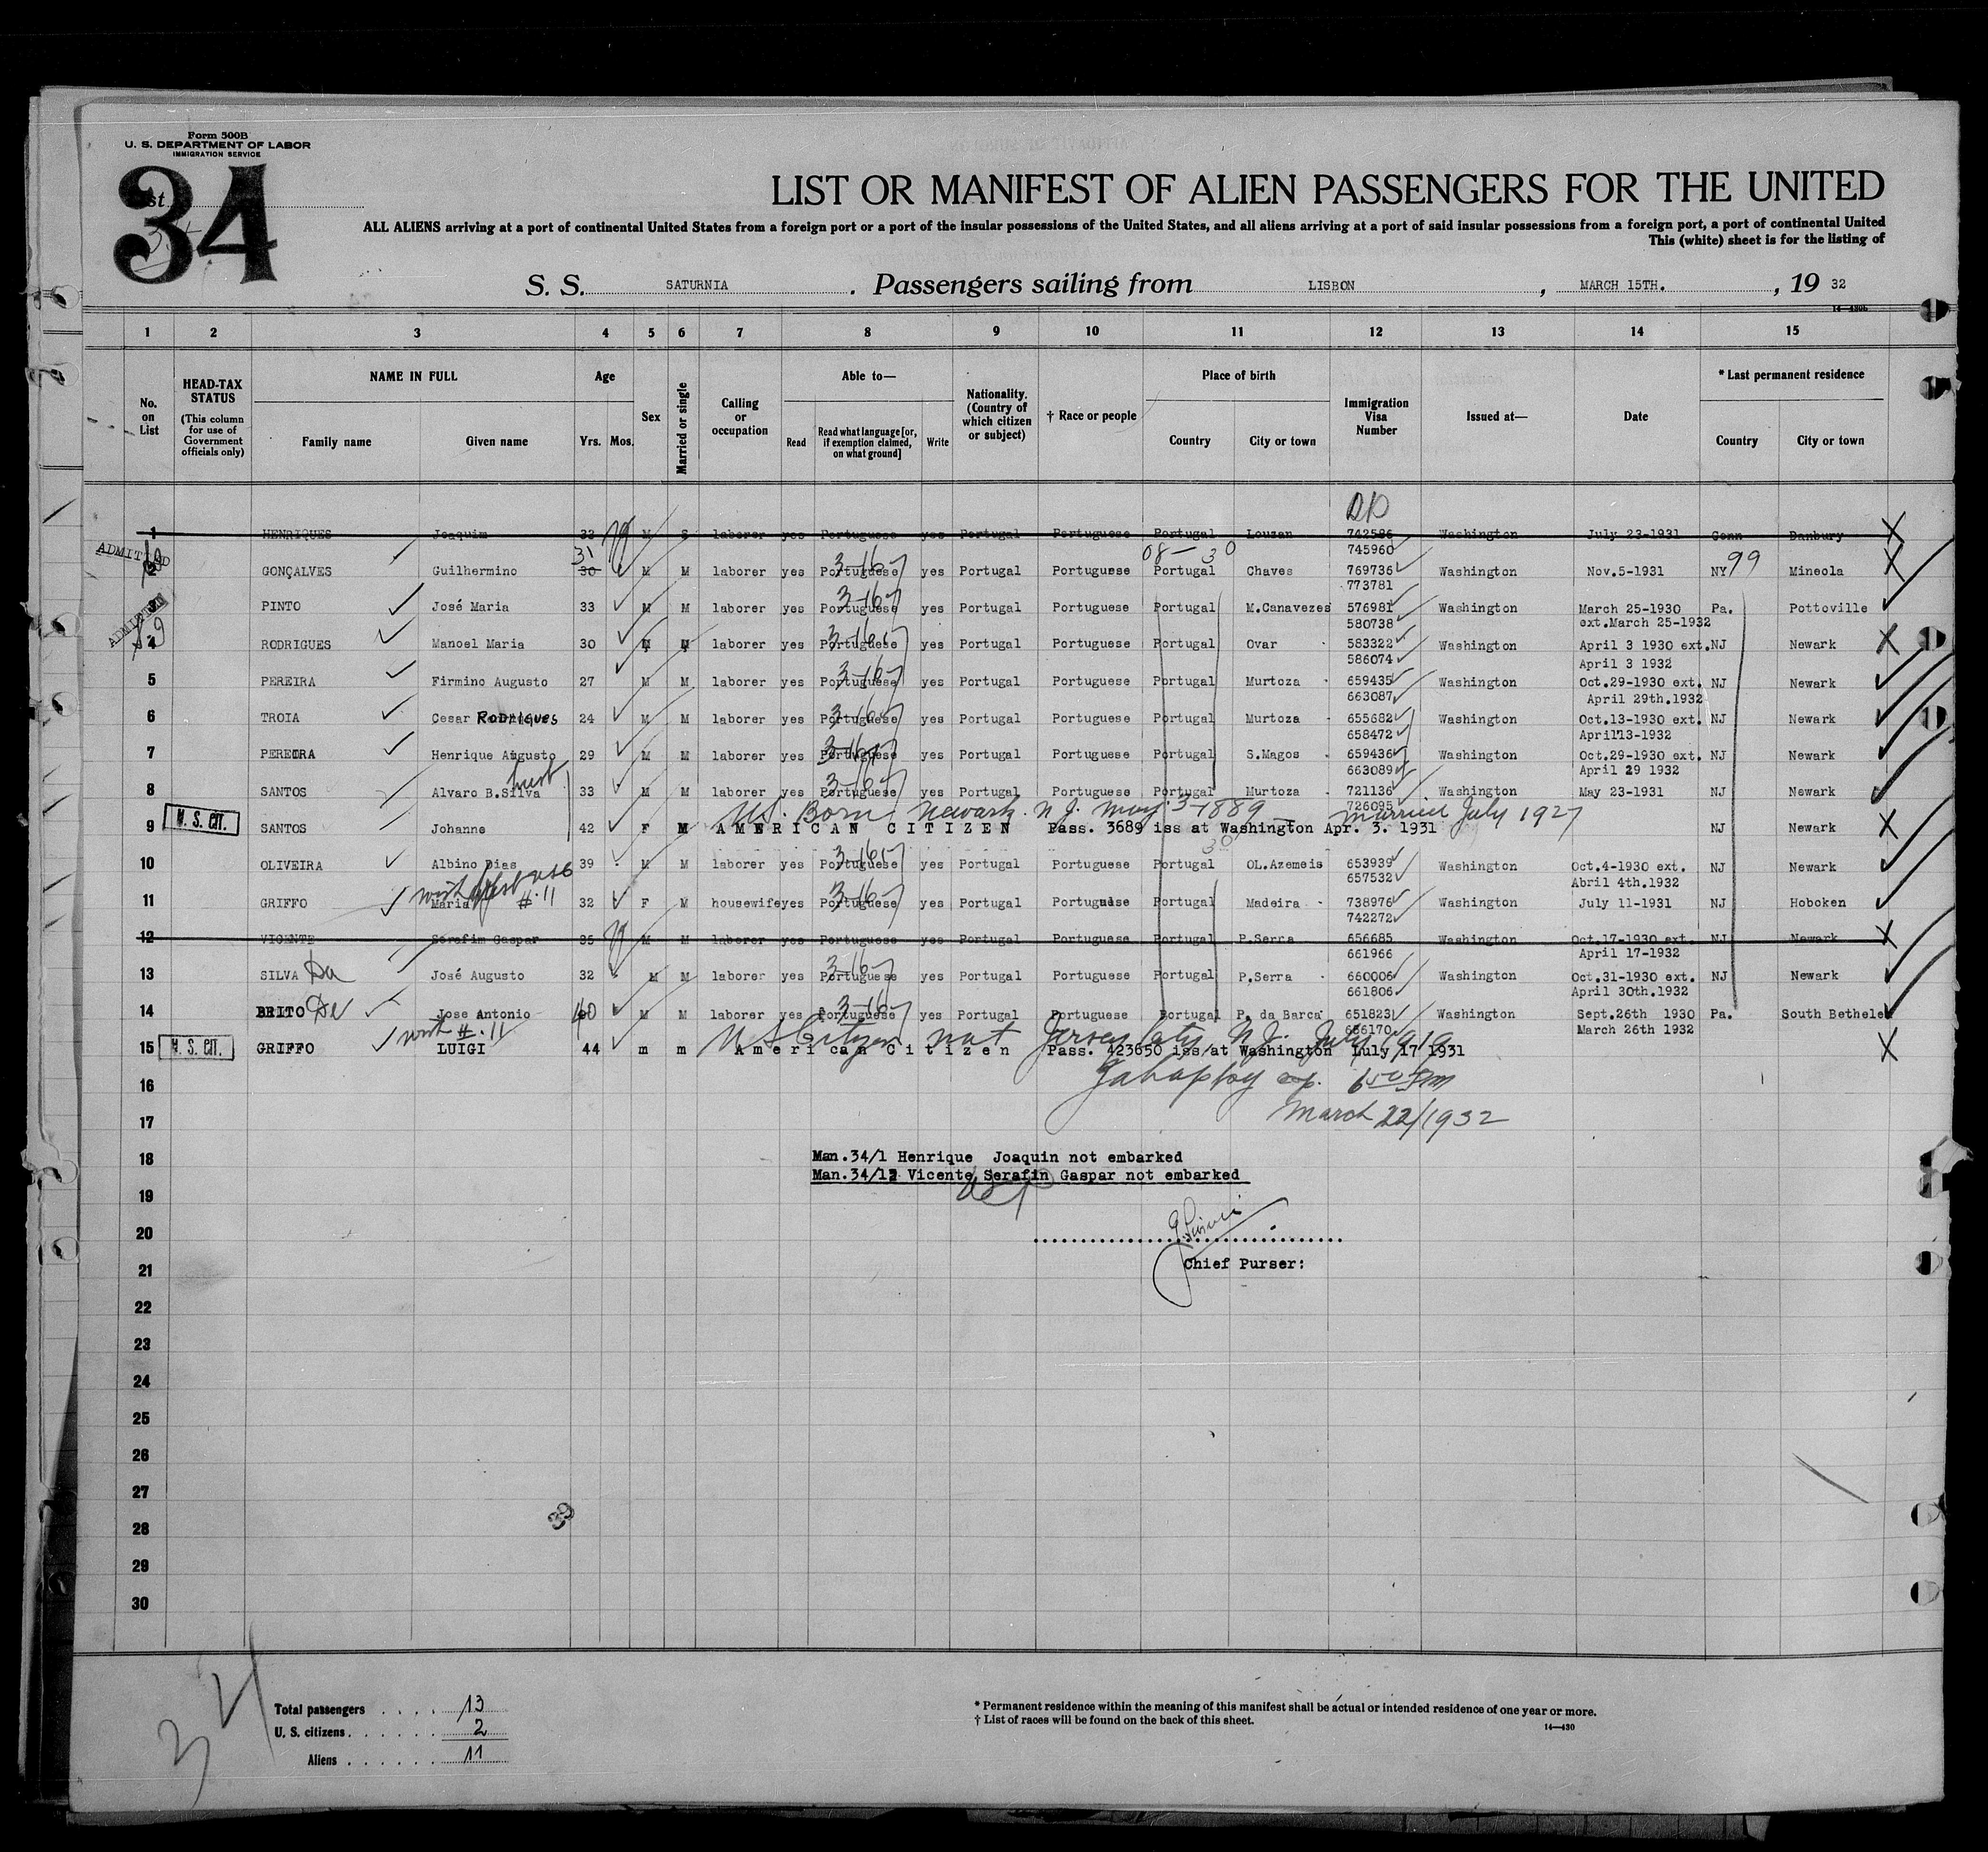 Form 500B
U. S. DEPARTMENT OF LABOR
IMMIGRATION SERVICE
34
LIST OR MANIFEST OF ALIEN PASSENGERS FOR THE UNITED
ALL ALIENS arriving at a port of continental United States from a foreign port or a port of the insular possessions of the United States, and all aliens arriving at a port of said insular possessions from a foreign port, a port of continental United
This (white) sheet is for the listing of
S. S. SATURNIA . Passengers sailing from LISBON , MARCH 15TH. , 19 32
14—430b
1 2 3 4 5 6 7 8 9 10 11 12 13 14 15
No. on List
HEAD-TAX STATUS (This column for use of Government officials only)
NAME IN FULL
Family name Given name
Age
Yrs. Mos.
Sex
Married or single
Calling or occupation
Able to—
Read Read what language [or, if exemption claimed, on what ground] Write
Nationality. (Country of which citizen or subject)
† Race or people
Place of birth
Country City or town
Immigration Visa Number
Issued at—
Date
* Last permanent residence
Country City or town
1 HENRIQUES Joaquim 33 M S laborer yes Portuguese yes Portugal Portuguese Portugal Louzan 742586 Washington July 23-1931 Conn Danbury X
745960
ADMITTED
31 08— 30
2 GONÇALVES Guilhermino 30 M M laborer yes Portuguese 3-16 yes Portugal Portuguese Portugal Chaves 769736 Washington Nov.5-1931 NY 99 Mineola X
773781
3 PINTO José Maria 33 M M laborer yes Portuguese 3-16 yes Portugal Portuguese Portugal M.Canavezes 576981 Washington March 25-1930 Pa. Pottoville
580738 ext.March 25-1932
ADMITTED
4 RODRIGUES Manoel Maria 30 M M laborer yes Portuguese 3-16 yes Portugal Portuguese Portugal Ovar 583322 Washington April 3 1930 ext. NJ Newark X
586074 April 3 1932
5 PEREIRA Firmino Augusto 27 M M laborer yes Portuguese 3-16 yes Portugal Portuguese Portugal Murtoza 659435 Washington Oct.29-1930 ext. NJ Newark
663087 April 29th.1932
6 TROIA Cesar RODRIGUES 24 M M laborer yes Portuguese 3-16 yes Portugal Portuguese Portugal Murtoza 655682 Washington Oct.13-1930 ext. NJ Newark
658472 April13-1932
7 PEREIRA Henrique Augusto 29 M M laborer yes Portuguese 3-16 yes Portugal Portuguese Portugal S.Magos 659436 Washington Oct.29-1930 ext. NJ Newark
663089 April 29 1932
husb
8 SANTOS Alvaro B.Silva 33 M M laborer yes Portuguese 3-16 yes Portugal Portuguese Portugal Murtoza 721136 Washington May 23-1931 NJ Newark
726095
U.S. Born Newark N.J. May 3-1889 married July 1927
9 U. S. CIT. SANTOS Johanne 42 F M AMERICAN CITIZEN Pass. 3689 iss at Washington Apr. 3. 1931 NJ Newark X
30
10 OLIVEIRA Albino Dias 39 M M laborer yes Portuguese 3-16 yes Portugal Portuguese Portugal OL.Azemeis 653939 Washington Oct.4-1930 ext. NJ Newark
657532 Abril 4th.1932
11 GRIFFO Maria 32 F M housewife yes Portuguese 3-16 yes Portugal Portuguese Portugal Madeira 738976 Washington July 11-1931 NJ Hoboken
742272
12 VICENTE Serafim Gaspar 35 M M laborer yes Portuguese yes Portugal Portuguese Portugal P.Serra 656685 Washington Oct.17-1930 ext. NJ Newark X
661966 April 17-1932
13 SILVA Da José Augusto 32 M M laborer yes Portuguese 3-16 yes Portugal Portuguese Portugal P.Serra 660006 Washington Oct.31-1930 ext. NJ Newark
661806 April 30th.1932
14 BRITO De Jose Antonio 40 M M laborer yes Portuguese 3-16 yes Portugal Portuguese Portugal P. da Barca 651823 Washington Sept.26th 1930 Pa. South Bethele
656170 March 26th 1932
with #.11 US Citizen nat Jersey City N.J. July 1919
15 U. S. CIT. GRIFFO LUIGI 44 m m American Citizen Pass. 423650 iss/at Washington Luly 17 1931 X
16
March 22/1932
17
18 Man.34/1 Henrique Joaquin not embarked
Man.34/12 Vicente Serafin Gaspar not embarked
19
20
21 Chief Purser:
22
23
24
25
26
27
28
29
30
34
Total passengers . . . . 13
U. S. citizens . . . . . . 2
Aliens . . . . . . 11
* Permanent residence within the meaning of this manifest shall be actual or intended residence of one year or more.
† List of races will be found on the back of this sheet.
14—430